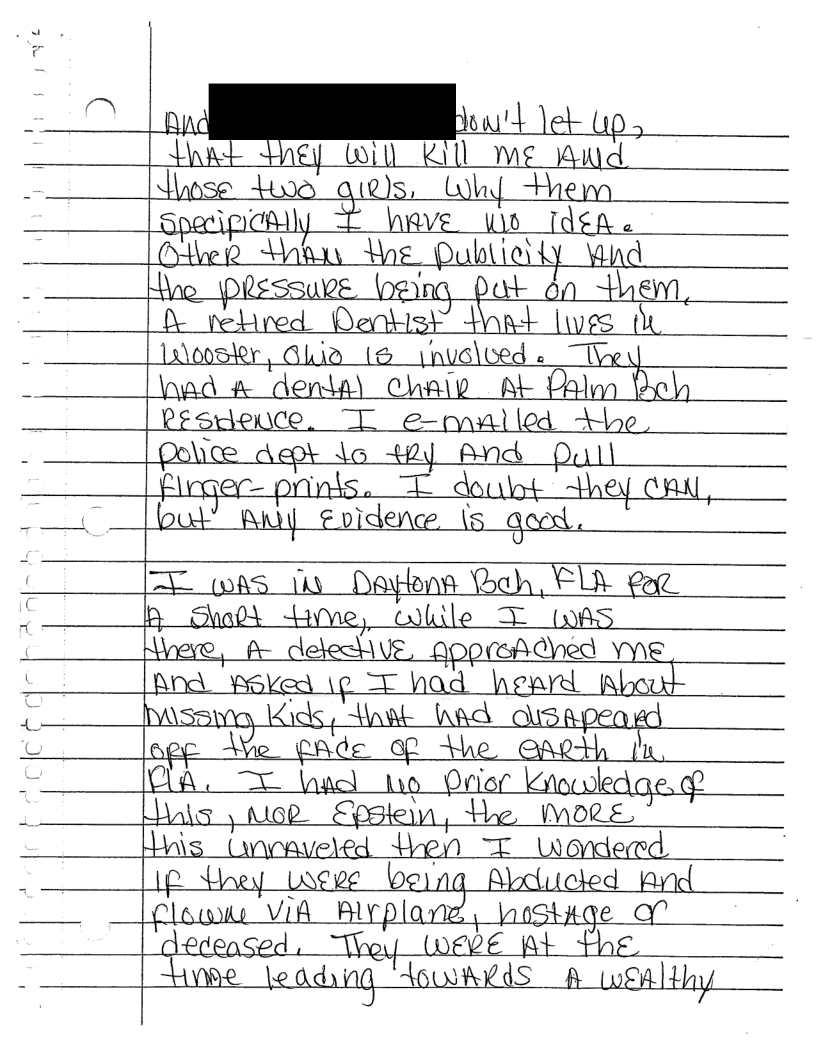 And don't let up,
that they will kill me and
those two girls. Why them
specifically I have no idea.
Other than the publicity and
the pressure being put on them,
A retired Dentist that lives in
Wooster, Ohio is involved. They
had a dental chair at Palm Bch
Residence. I e-mailed the
police dept to try and pull
finger-prints. I doubt they can,
but any evidence is good.
I was in Daytona Bch, FLA for
a short time, while I was
there, a detective approached me
and asked if I had heard about
missing kids, that had disapeard
off the face of the earth in
FLA. I had no prior knowledge of
this, nor Epstein, the more
this unraveled then I wondered
if they were being abducted and
flown via airplane, hostage or
deceased. They were at the
time leading towards a wealthy